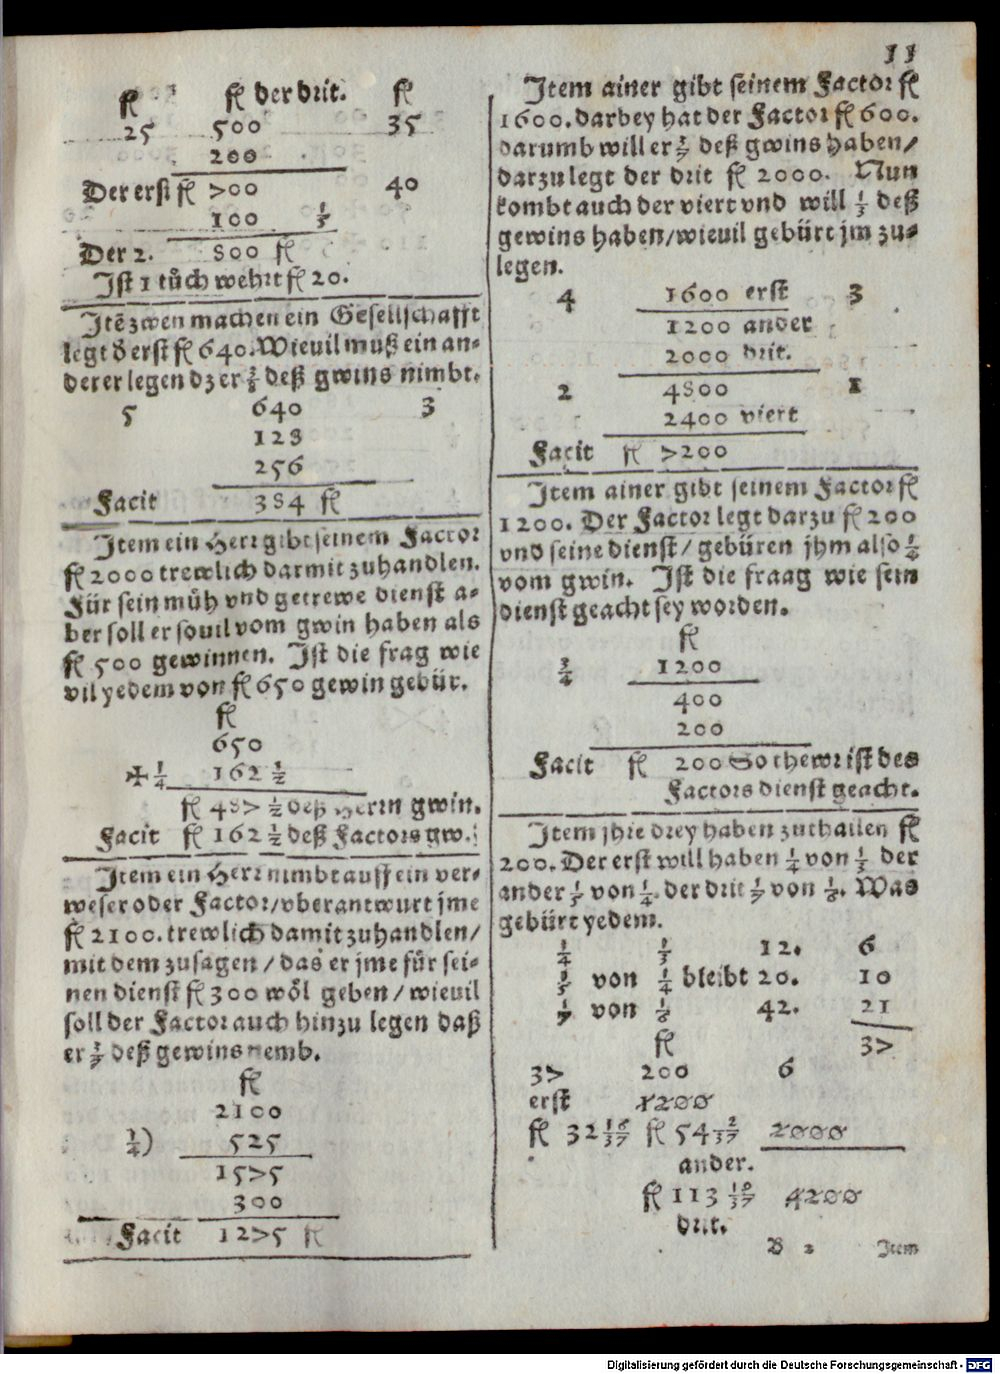 11
fl fl der drit. fl
25 500 35
200
Der erst fl >00 40
100 1/5
Der 2. 800 fl
Ist 1 tůch wehrt fl 20.
Itē zwen machen ein Gesellschafft
legt d erst fl 640. Wieuil muß ein an-
derer legen dz er 3/8 deß gwins nimbt.
5 640 3
128
256
Facit 384 fl
Item ein Herr gibt seinem Factor
fl 2000 trewlich darmit zuhandlen.
Für sein můh vnd getrewe dienst a-
ber soll er souil vom gwin haben als
fl 500 gewinnen. Ist die frag wie
vil yedem von fl 650 gewin gebür.
fl
650
✠ 1/4 162 1/2
fl 48> 1/2 deß Herrn gwin.
Facit fl 162 1/2 deß Factors gw.
Item ein Herr nimbt auff ein ver-
weser oder Factor/vberantwurt jme
fl 2100. trewlich damit zuhandlen/
mit dem zusagen/das er jme für sei-
nen dienst fl 300 wöl geben/wieuil
soll der Factor auch hinzu legen daß
er 3/7 deß gewins nemb.
fl
2100
1/4) 525
15>5
300
Facit 12>5 fl
Item ainer gibt seinem Factor fl
1600. darbey hat der Factor fl 600.
darumb will er 3/7 deß gwins haben/
darzu legt der drit fl 2000. Nun
kombt auch der viert vnd will 1/3 deß
gewins haben/wieuil gebürt jm zu-
legen.
4 1600 erst 3
1200 ander
2000 drit.
2 4800 1
2400 viert
Facit fl >200
Item ainer gibt seinem Factor fl
1200. Der Factor legt darzu fl 200
vnd seine dienst/gebüren jhm also 1/4
vom gwin. Ist die fraag wie sein
dienst geacht sey worden.
fl
3/4 1200
400
200
Facit fl 200 So thewr ist des
Factors dienst geacht.
Item jhre drey haben zuthailen fl
200. Der erst will haben 1/4 von 1/3 der
ander 1/5 von 1/4. der drit 1/7 von 1/6. Was
gebürt yedem.
1/4 1/3 12. 6
1/5 von 1/4 bleibt 20. 10
1/7 von 1/6 42. 21
fl 3>
3> 200 6
erst 1200
fl 32 16/37 fl 54 2/37 2000
ander.
fl 113 19/37 4200
drit.
B 2 Item
Digitalisierung gefördert durch die Deutsche Forschungsgemeinschaft - DFG